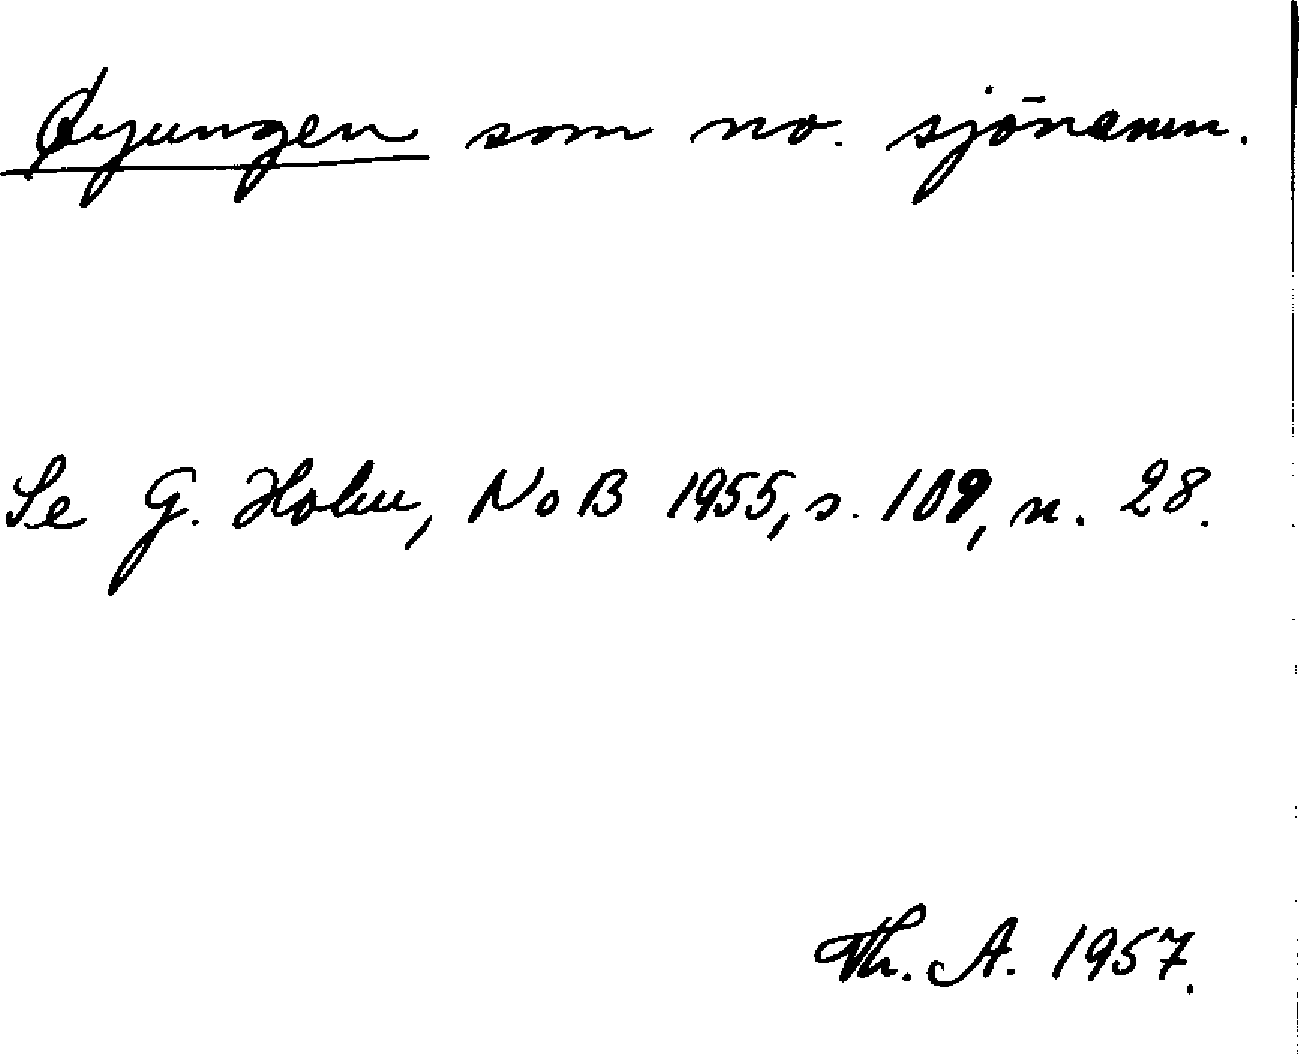 Øyungen som no. sjönamn.
Se G. Holm, NoB 1955, s. 109, n. 28.
Th. A. 1957.